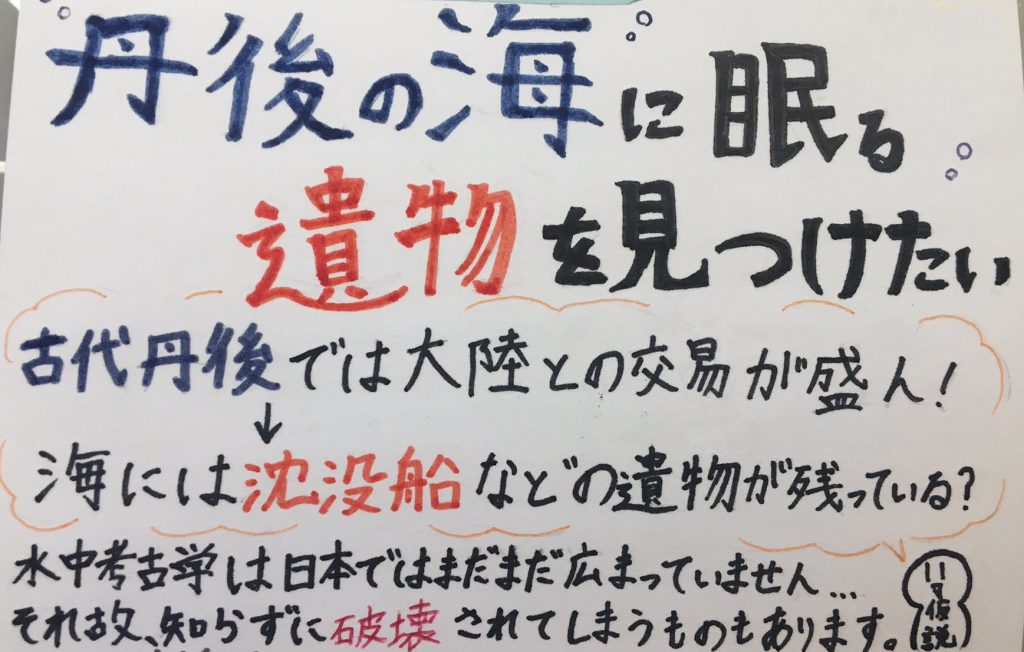 丹後の海に眠る
遺物を見つけたい
古代丹後では大陸との交易が盛ん!
↓
海には沈没船などの遺物が残っている?
水中考古学は日本ではまだまだ広まっていません...
それ故、知らずに破壊されてしまうものもあります。
仮説